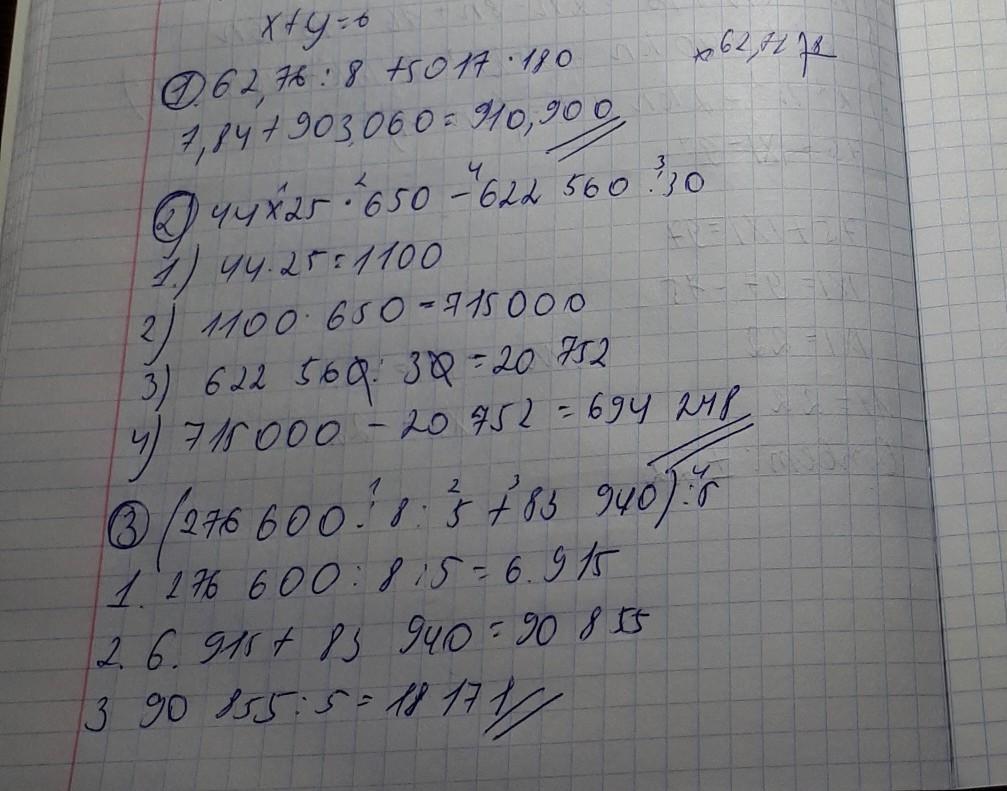 x+y=6
1. 62,76 : 8 +5017 · 180
7,84+903,060=910,900
2) 44x25 · 650 - 622 560 : 30
1.) 44·25=1100
2) 1100 · 650=715000
3) 622 560 : 30 =20 752
4) 715000 - 20 752 =694 248
3) (276 600 : 8 : 5 + 83 940) : 5
1. 276 600 : 8 : 5 = 6.915
2. 6.915+ 83 940=90 855
3 90 855 : 5 = 18 171